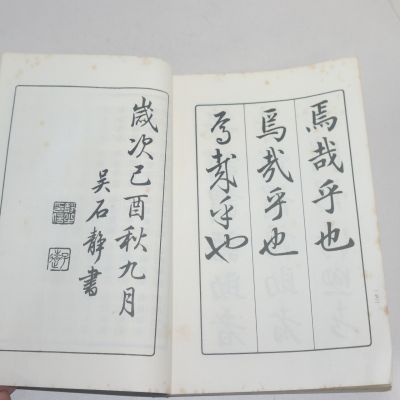 焉哉乎也
焉哉乎也
焉哉乎也
歲次己酉秋九月
吴石靜書